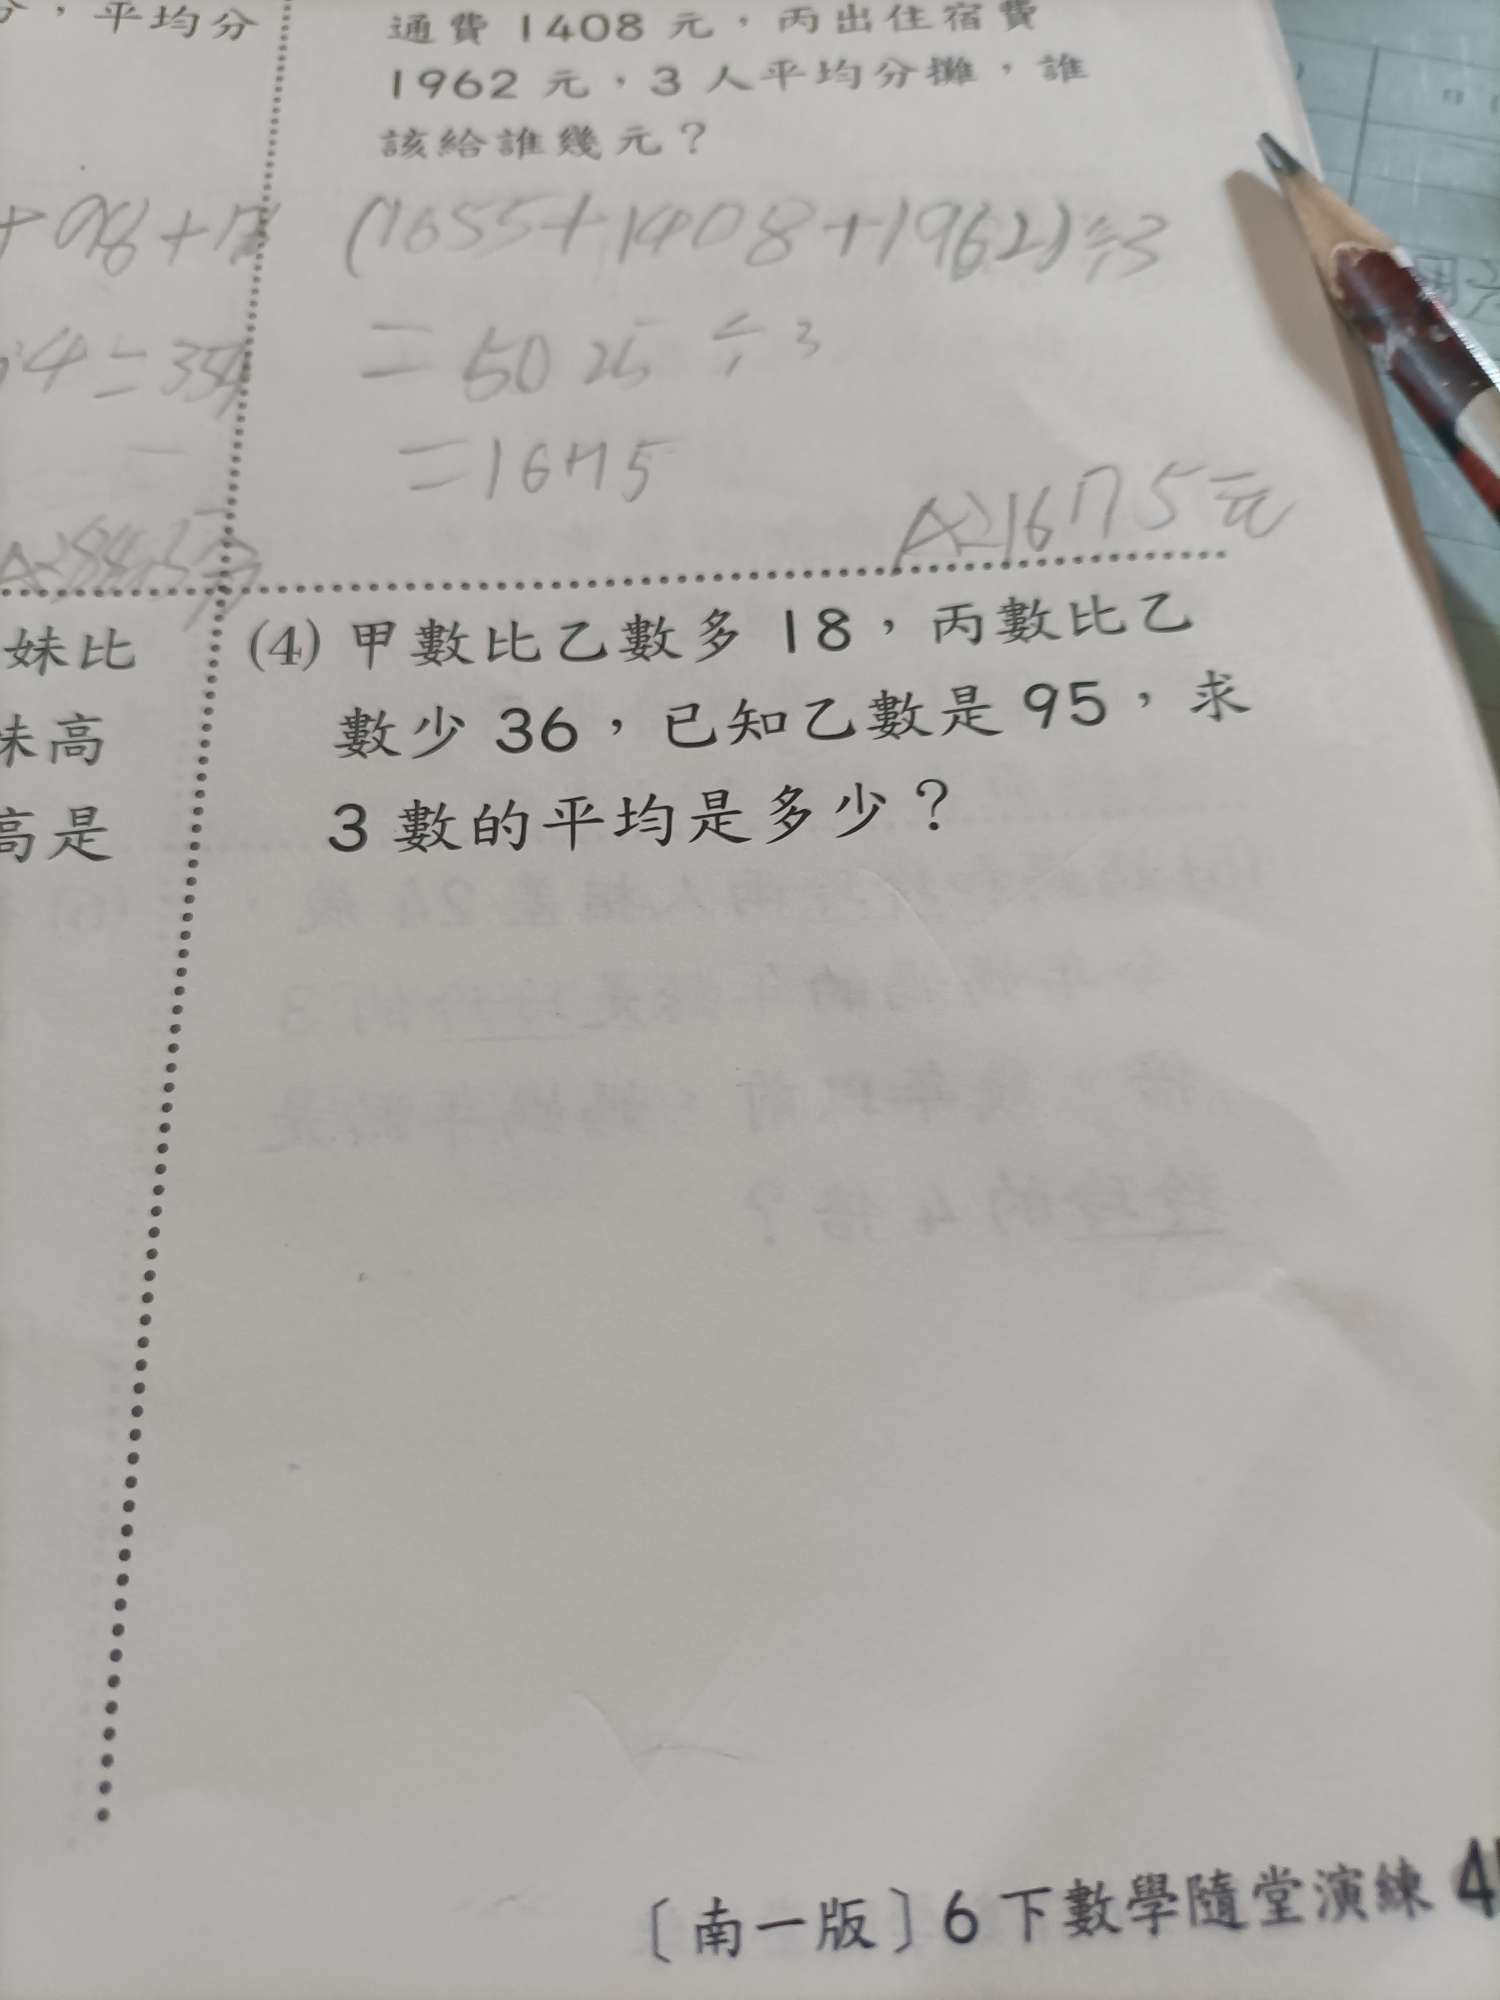 ，平均分
通費 1408 元，丙出住宿費
1962 元，3 人平均分攤，誰
該給誰幾元？
(1655+1408+1962)÷3
=5025÷3
=1675
A:1675元
+98+
4=354
妹比
妹高
高是
(4) 甲數比乙數多 18，丙數比乙
數少 36，已知乙數是 95，求
3 數的平均是多少？
〔南一版〕6 下數學隨堂演練